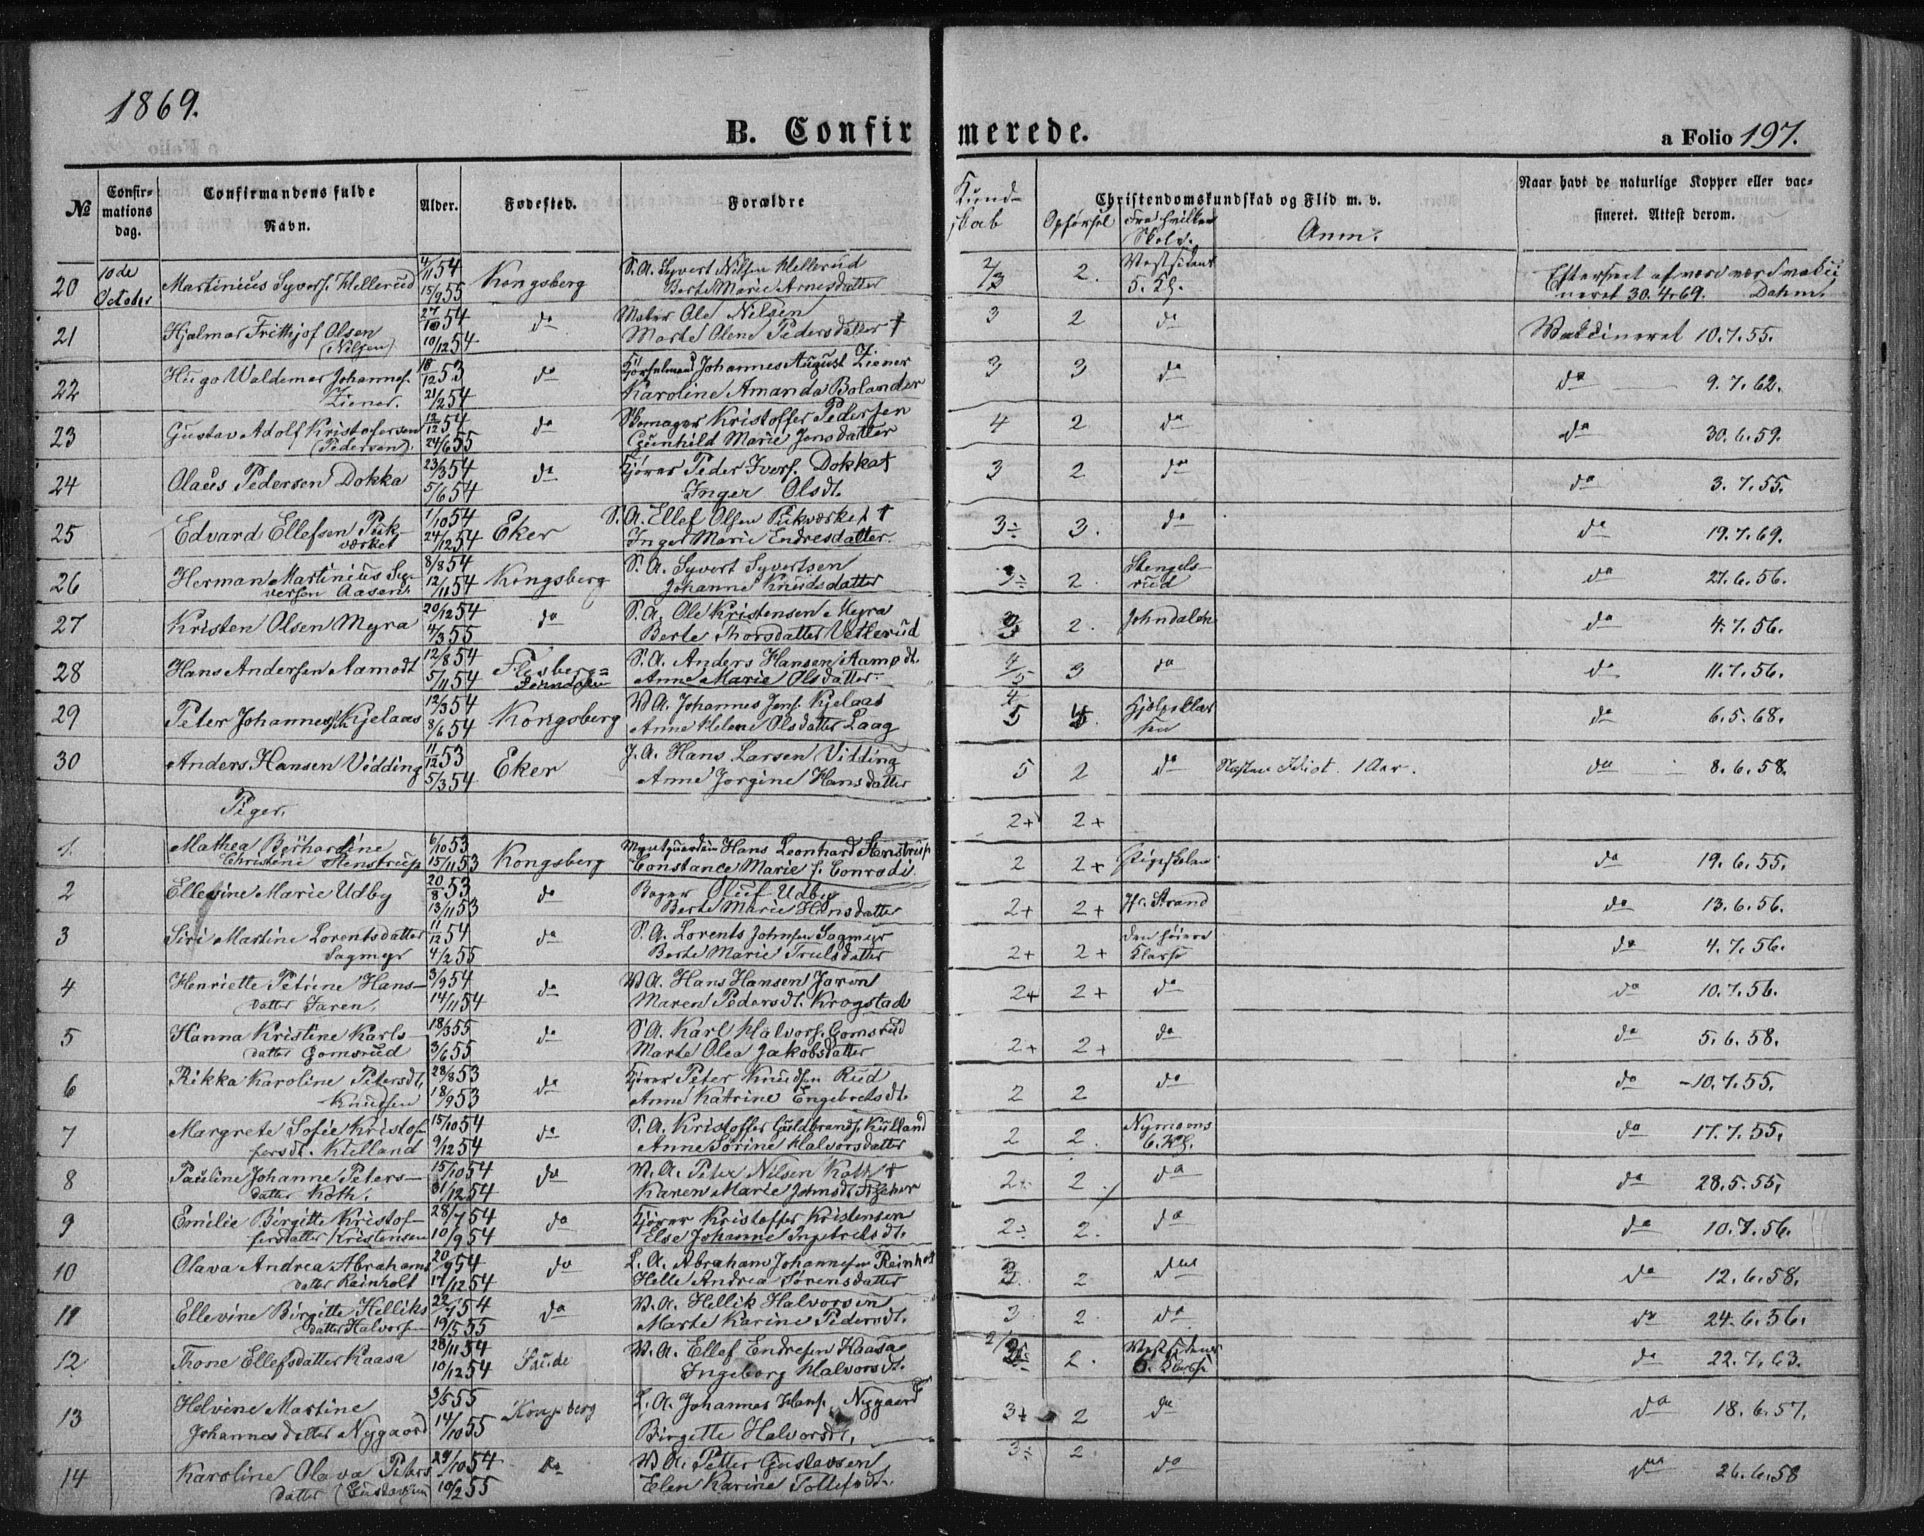 1869.
B. Confirmerede.
a Folio 197.
№
Confirmations dag.
Confirmandens fulde Navn.
Alder.
Fødested.
Forældre
Kundskab
Opførsel
Christendomskundskab og Flid m. v.
Fra hvilken Skole.
Anm.
Naar havt de naturlige Kopper eller vaccineret. Attest derom.
20 10de October Martinius Syvers. Hellerud 4/11 54 15/9 55 Kongsberg S. A. Syvert Nilsen Hellerud Berte Marie Arnesdatter 2/3 2. Vestsidens 5. Kl. 30.4.69. Dahm.
21 Hjalmar Frithjof Olsen (Nilsen) 27/10 54 10/12 54 do Ole Nilsen Marte Olene Pedersdatter † 3 2 do Vakcineret 10.7.55.
22 Hugo Waldemar Johannes. Ziener. 18/12 53 21/2 54 do Johannes August Ziener Karoline Amanda Bolander 3 3 do do 9.7.62.
23 Gustav Adolf Kristofersen (Pedersen). 12/12 54 24/6 55 do Skomager Kristoffer Pedersen Gunhild Marie Jensdatter 4 2 do do 30.6.59.
24 Olaus Pedersen Dokka 23/3 54 5/6 54 do Kjører Peder Ivers. Dokka † Inger Olsdt. 3 2 do do 3.7.55.
25 Edvard Ellefsen Pukværket 1/10 54 24/12 54 Eker S. A. Ellef Olsen Pukværket † Inger Marie Endresdatter 3÷ 3. do do 19.7.69.
26 Herman Martinius Syversen Aasen. 8/8 54 12/11 54 Kongsberg S. A. Syvert Syvertsen Johanne Knudsdatter 3÷ 2. Stengelsrud do 27.6.56.
27 Kristen Olsen Myra 20/12 54 4/3 55 do S. A. Ole Kristensen Myra Berte Thorsdatter Vetlerud 2. Johndalen do 4.7.56.
28 Hans Andersen Aamodt 12/8 54 5/11 54 Flesberg= S. A. Anders Hansen Aamodt. Anne Marie Olsdatter 4/5 3 do do 11.7.56.
29 Peter Johannes. Kjelaas 12/3 54 8/6 54 Kongsberg V A. Johannes Jens. Kjelaas Anne Helene Olsdatter Laag 4/5 do 6.5.68.
30 Anders Hansen Vidding 11/12 53 5/3 54 Eker J. A. Hans Larsen Vidding Anne Jorgine Hansdatter 5 2 do Næsten Idiot. 1 Aar. do 8.6.58.
Piger.
2+ 2+
1 Mathea Berhardine Christene Stenstrup 6/10 53 15/11 53 Kongsberg Myntguardein Hans Leonhard Stenstrup Constance Marie f. Conradi 2 2+ Pigeskolen do 19.6.55.
2 Ellevine Marie Udby 20/8 53 13/11 53 do Bager Oluf Udby Berte Marie Hansdatter 2+ 2+ Hr. Strand do 13.6.56.
3 Siri Martine Lorentsdatter Sagmyr 11/12 54 4/2 55 do S. A. Lorents Johnsen Sagmyr Berte Marie Trulsdatter 2+ 2+ den høiere Klasse do 4.7.56.
4 Henriette Petrine Hansdatter Jaren. 3/9 54 14/11 54 do V A. Hans Hansen Jaren Maren Pedersdt. Krogstad 2+ 2+ do do 10.7.56.
5 Hanna Kristine Karlsdatter Gomsrud 18/3 55 3/6 55 do S A. Karl Halvors. Gomsrud Marte Olea Jakobsdatter 2+ 2+ do do 5.6.58.
6 Rikka Karoline Petersdt. Knudsen 28/8 53 18/9 53 do Kjører Peter Knudsen Rud Anne Katrine Engebretsdt. 2 2 do do 10.7.55.
7 Margrete Sofie Kristoffersdt. Killand 15/10 54 9/12 54 do S. A. Kristoffer Guldbrands. Killand Anne Sørine Halvorsdatter 2 2. Nymoens 6. Kl. do 17.7.55.
8 Pauline Johanne Petersdatter Koth. 15/10 54 31/12 54 do V. A. Peter Nilsen Koth † Karen Marie Johnsdt. 2+ 2. do do 28.5.55.
9 Emilie Birgitte Kristoffersdatter Kristensen 28/7 54 10/9 54 do Kjører Kristoffer Kristensen Else Johanne Ingebretsdt. 2÷ 2. do do 10.7.56.
10 Olava Andrea Abrahamsdatter Reinholt 20/9 54 17/12 54 do L. A. Abraham Johannesen Reinholt Helle Andrea Sørensdatter 2 do do 12.6.58.
11 Ellevine Birgitte Helliksdatter Halvorsen 22/7 54 19/5 55 do V. A. Hellik Halvorsen Marte Karine Pedersdt. 3 2. do do 24.6.56.
12 Thone Ellefsdatter Kaasa 28/11 54 10/12 54 V. A. Ellef Endresen Kaasa Ingeborg Halvorsdt. 2. Vestsidens 6. Klasse do 22.7.63.
13 Helvine Martine Johannesdatter Nygaard 3/5 55 14/10 55 Kongsberg L. A. Johannes Hans. Nygaard Birgitte Halvorsdt. 3+ 2 do do 18.6.57.
14 Karoline Olava Petersdatter (Gustavsen) 29/10 54 10/2 55 do V A. Petter Gustavsen Elen Karine Tollefsdt. 3÷ 2. do do 26.6.58